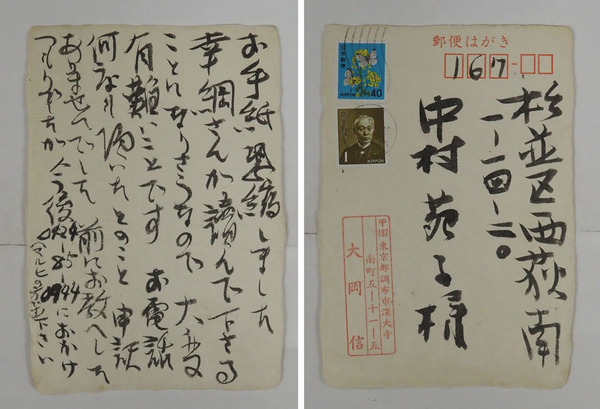 お手紙恐縮しました
幸綱さんが読んで下さる
ことになりさうなので 大変
有難いことです お電話
何度も頂いたとのこと 申訳
ありませんでした 前にお教へした
つもりでしたが 今後
におかけ
下さい
郵便はがき
167
日本郵便
NIPPON 40
1 NIPPON
杉並区西荻南
一-一四-二〇
中村苑子様
東京都調布市深大寺
南町五-十一-五
大岡信